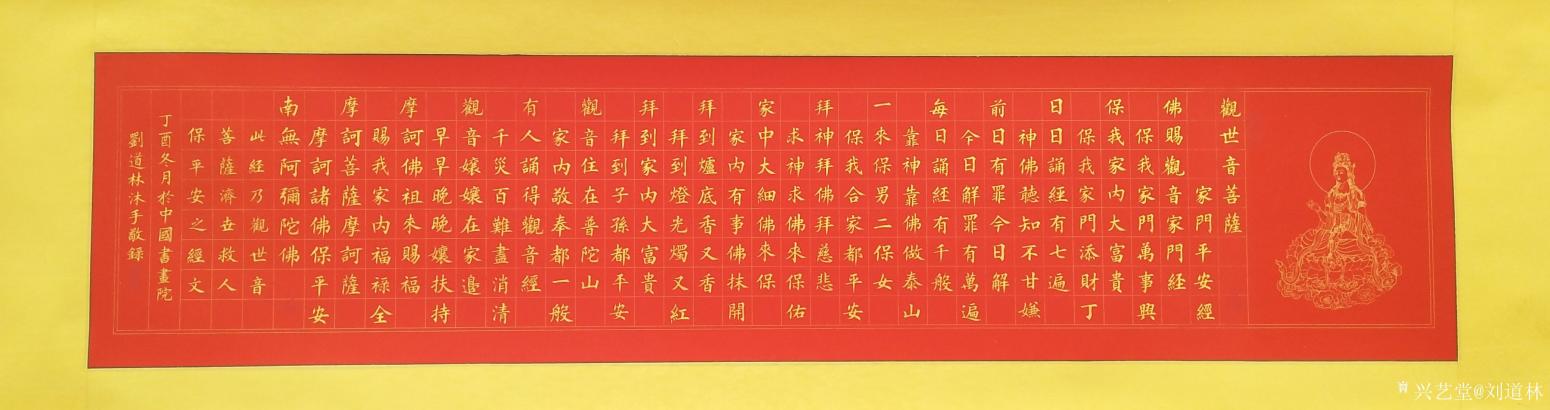 觀世音菩薩
家門平安經
佛賜觀音家門経
保我家門萬事興
保我家內大富貴
保我家門添財丁
日日誦經有七遍
神佛聽知不甘嫌
前日有罪今日解
今日解罪有萬遍
每日誦經有千般
靠神靠佛做泰山
一來保男二保女
保我合家都平安
拜神拜佛拜慈悲
求神求佛來保佑
家中大細佛來保
家內有事佛抹開
拜到爐底香又香
拜到燈光燭又紅
拜到家內大富貴
拜到子孫都平安
觀音住在普陀山
家內敬奉都一般
有人誦得觀音經
千災百難盡消清
觀音孃孃在家邉
早早晚晚孃扶持
摩訶佛祖來賜福
賜我家內福祿全
摩訶菩薩摩訶薩
摩訶諸佛保平安
南無阿彌陀佛
此經乃觀世音
菩薩濟世救人
保平安之經文
丁酉冬月於中國書畫院
劉道林沐手敬録
兴艺堂@刘道林